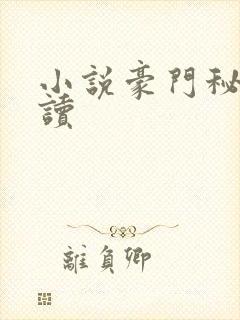 小說豪門秘
讀
離負卿